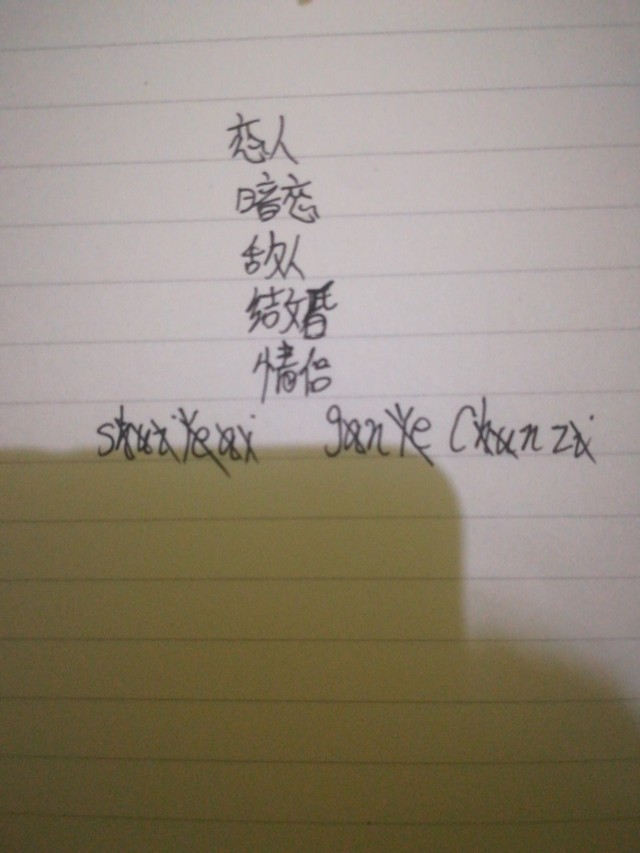 恋人
暗恋
敌人
结婚
情侣
shuiyeai ganye Chunzi